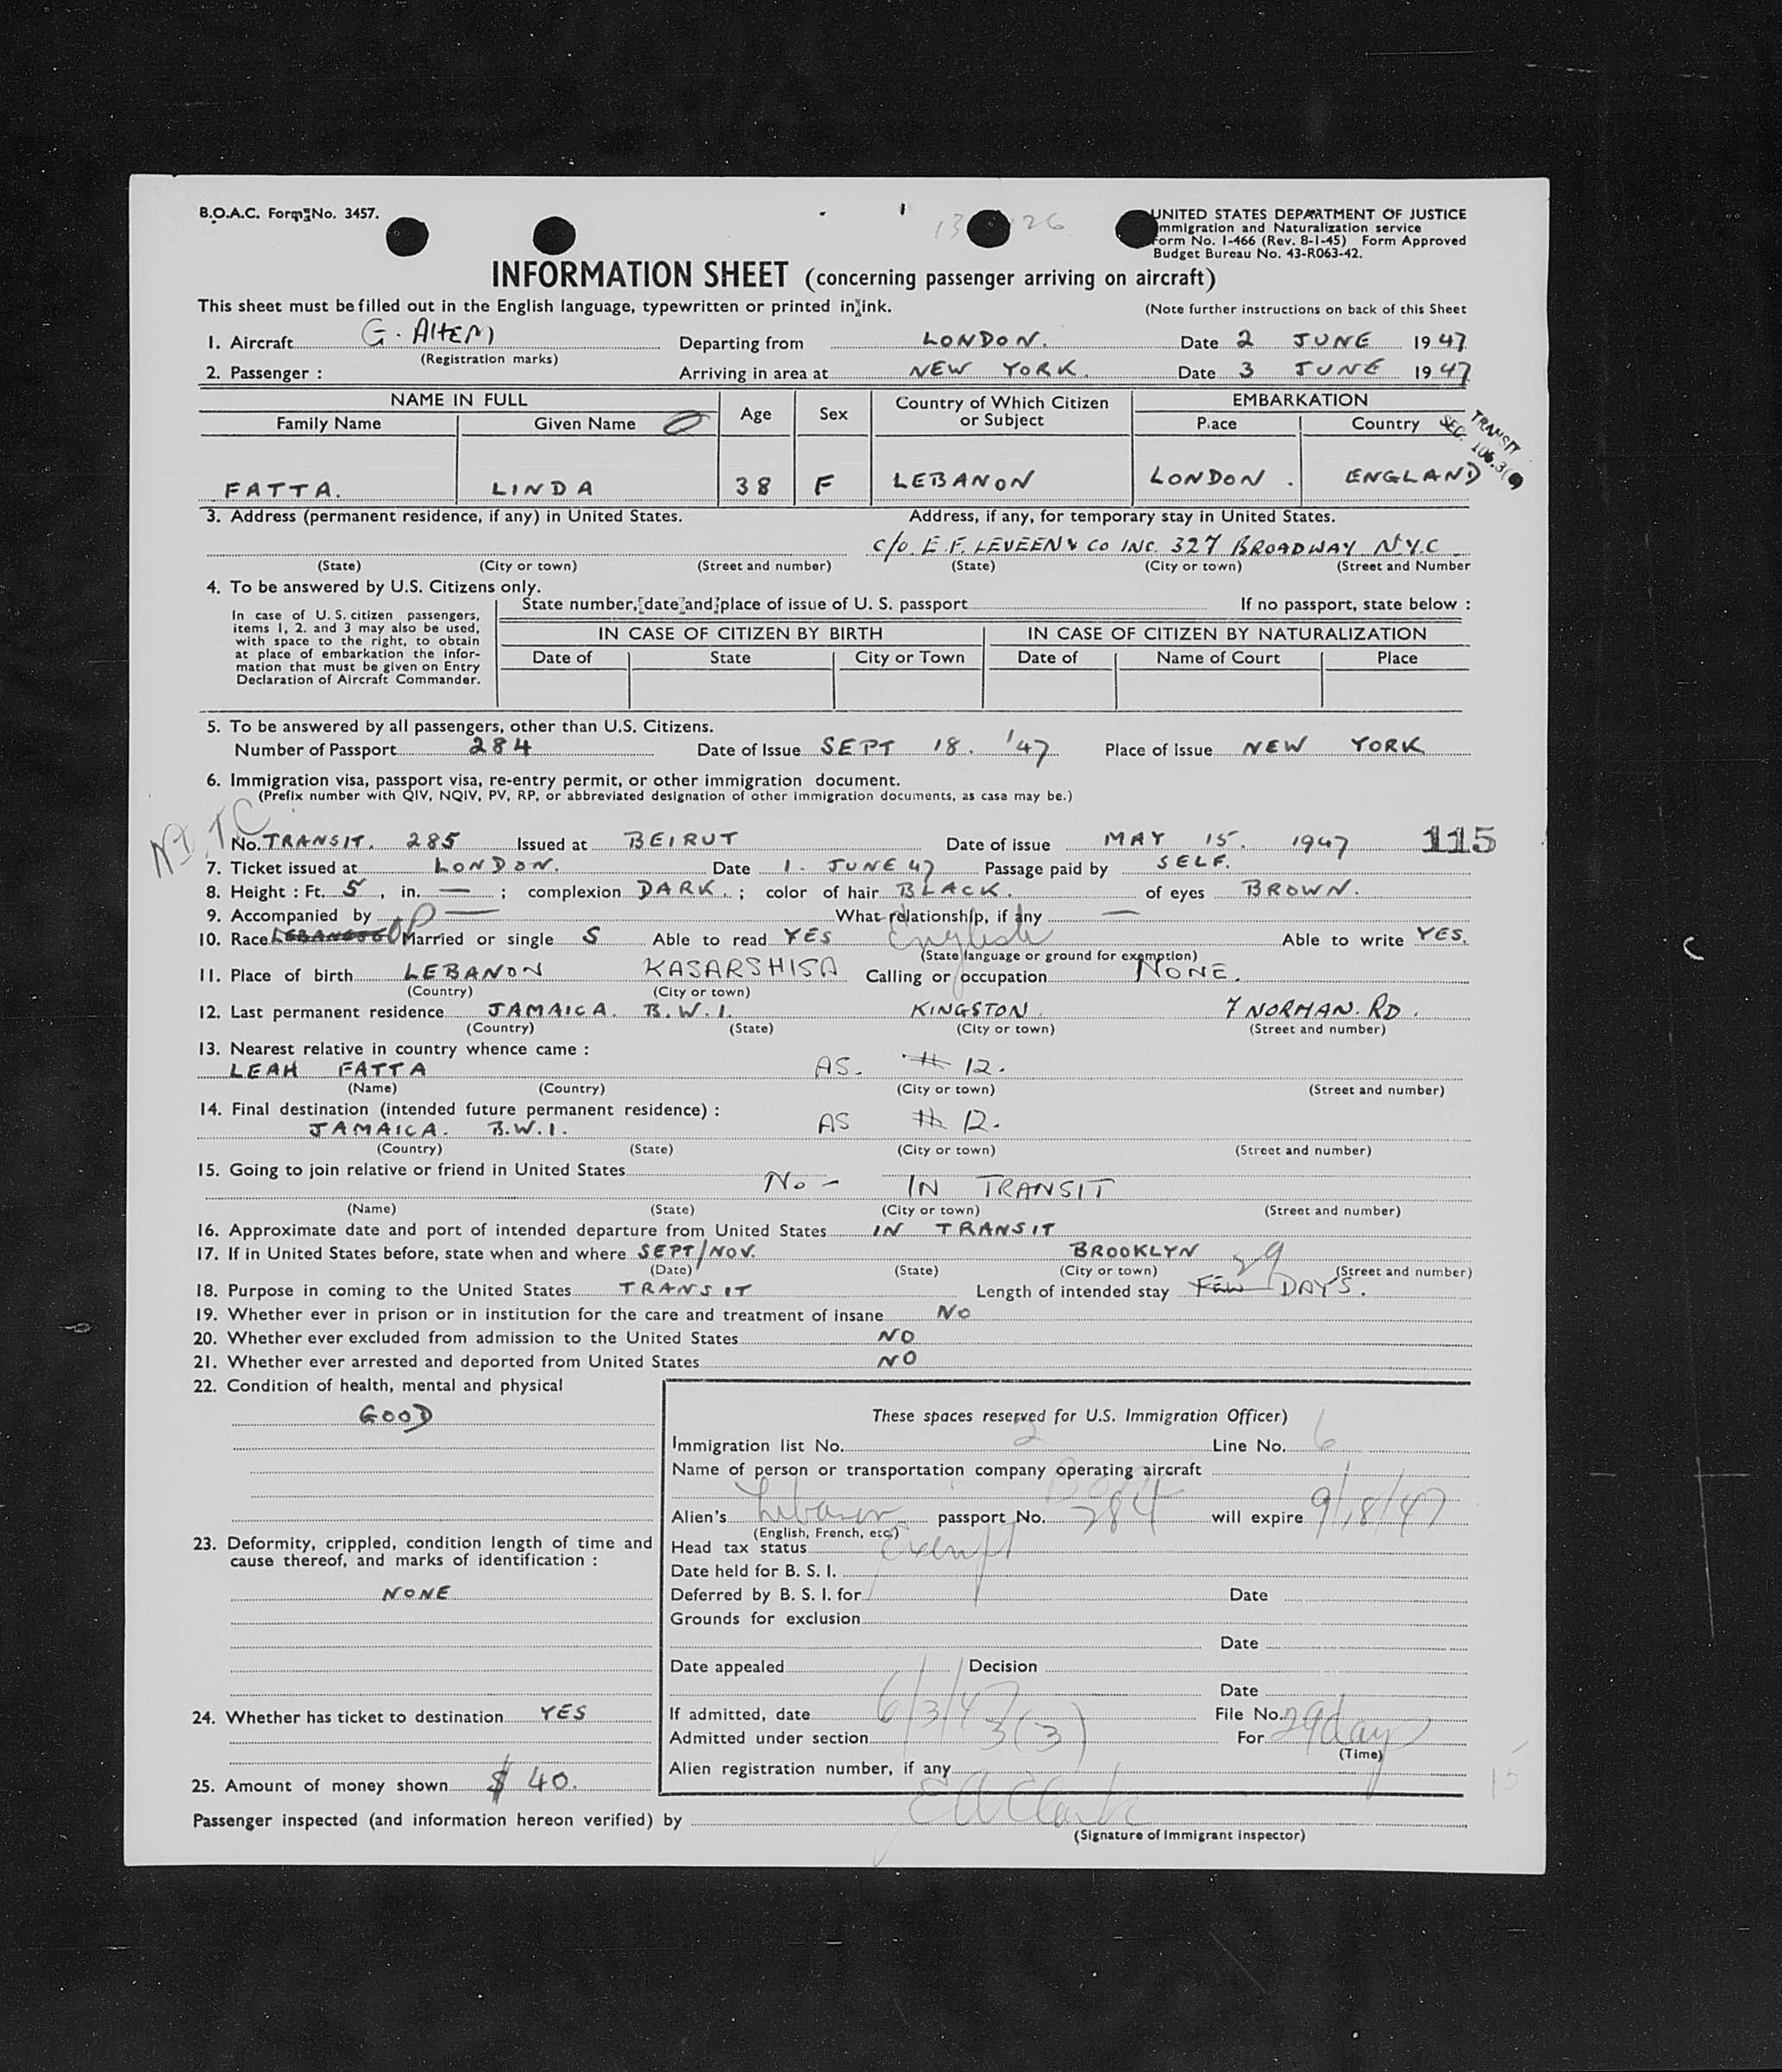 B.O.A.C. Form No. 3457.
UNITED STATES DEPARTMENT OF JUSTICE
Immigration and Naturalization service
Form No. 1-466 (Rev. 8-1-45) Form Approved
Budget Bureau No. 43-R063-42.
INFORMATION SHEET (concerning passenger arriving on aircraft)
This sheet must be filled out in the English language, typewritten or printed in ink. (Note further instructions on back of this Sheet
1. Aircraft G. AHEM Departing from LONDON. Date 2 JUNE 1947
(Registration marks)
2. Passenger : Arriving in area at NEW YORK. Date 3 JUNE 1947
NAME IN FULL Age Sex Country of Which Citizen or Subject EMBARKATION
Family Name Given Name Place Country
TRANSIT
SEC.
FATTA. LINDA 38 F LEBANON LONDON. ENGLAND
3. Address (permanent residence, if any) in United States. Address, if any, for temporary stay in United States.
c/o. E.F. LEVEEN & CO INC. 327 BROADWAY N.Y.C
(State) (City or town) (Street and number) (State) (City or town) (Street and Number
4. To be answered by U.S. Citizens only.
In case of U. S. citizen passengers, items 1, 2. and 3 may also be used, with space to the right, to obtain at place of embarkation the information that must be given on Entry Declaration of Aircraft Commander.
State number, date and place of issue of U. S. passport If no passport, state below :
IN CASE OF CITIZEN BY BIRTH IN CASE OF CITIZEN BY NATURALIZATION
Date of State City or Town Date of Name of Court Place
5. To be answered by all passengers, other than U.S. Citizens.
Number of Passport 284 Date of Issue SEPT 18. '47 Place of Issue NEW YORK
6. Immigration visa, passport visa, re-entry permit, or other immigration document.
(Prefix number with QIV, NQIV, PV, RP, or abbreviated designation of other immigration documents, as case may be.)
No. TRANSIT. 285 Issued at BEIRUT Date of issue MAY 15. 1947 115
7. Ticket issued at LONDON. Date 1. JUNE 47 Passage paid by SELF.
8. Height : Ft. 5, in. — ; complexion DARK. ; color of hair BLACK. of eyes BROWN.
9. Accompanied by — What relationship, if any —
10. Race LEBANESE Married or single S Able to read YES English Able to write YES.
(State language or ground for exemption)
11. Place of birth LEBANON KASARSHISA Calling or occupation NONE.
(Country) (City or town)
12. Last permanent residence JAMAICA. B.W.I. KINGSTON. 7 NORMAN. RD.
(Country) (State) (City or town) (Street and number)
13. Nearest relative in country whence came :
LEAH FATTA AS. # 12.
(Name) (Country) (City or town) (Street and number)
14. Final destination (intended future permanent residence) :
JAMAICA. B.W.I. AS # 12.
(Country) (State) (City or town) (Street and number)
15. Going to join relative or friend in United States
No - IN TRANSIT
(Name) (State) (City or town) (Street and number)
16. Approximate date and port of intended departure from United States IN TRANSIT
17. If in United States before, state when and where SEPT/NOV. BROOKLYN
(Date) (State) (City or town) (Street and number)
18. Purpose in coming to the United States TRANSIT Length of intended stay FEW 29 DAYS.
19. Whether ever in prison or in institution for the care and treatment of insane NO
20. Whether ever excluded from admission to the United States NO
21. Whether ever arrested and deported from United States NO
22. Condition of health, mental and physical
GOOD
These spaces reserved for U.S. Immigration Officer)
Immigration list No. 2 Line No. 6
Name of person or transportation company operating aircraft
Alien's Lebanon passport No. 284 will expire 9/18/47
(English, French, etc.)
Head tax status Exempt
23. Deformity, crippled, condition length of time and cause thereof, and marks of identification :
NONE
Date held for B. S. I.
Deferred by B. S. I. for Date
Grounds for exclusion
Date
Date appealed Decision
Date
24. Whether has ticket to destination YES
If admitted, date 6/3/47 File No.
Admitted under section 3(3) For 29 days
(Time)
Alien registration number, if any
25. Amount of money shown $ 40.
Passenger inspected (and information hereon verified) by
(Signature of Immigrant Inspector)